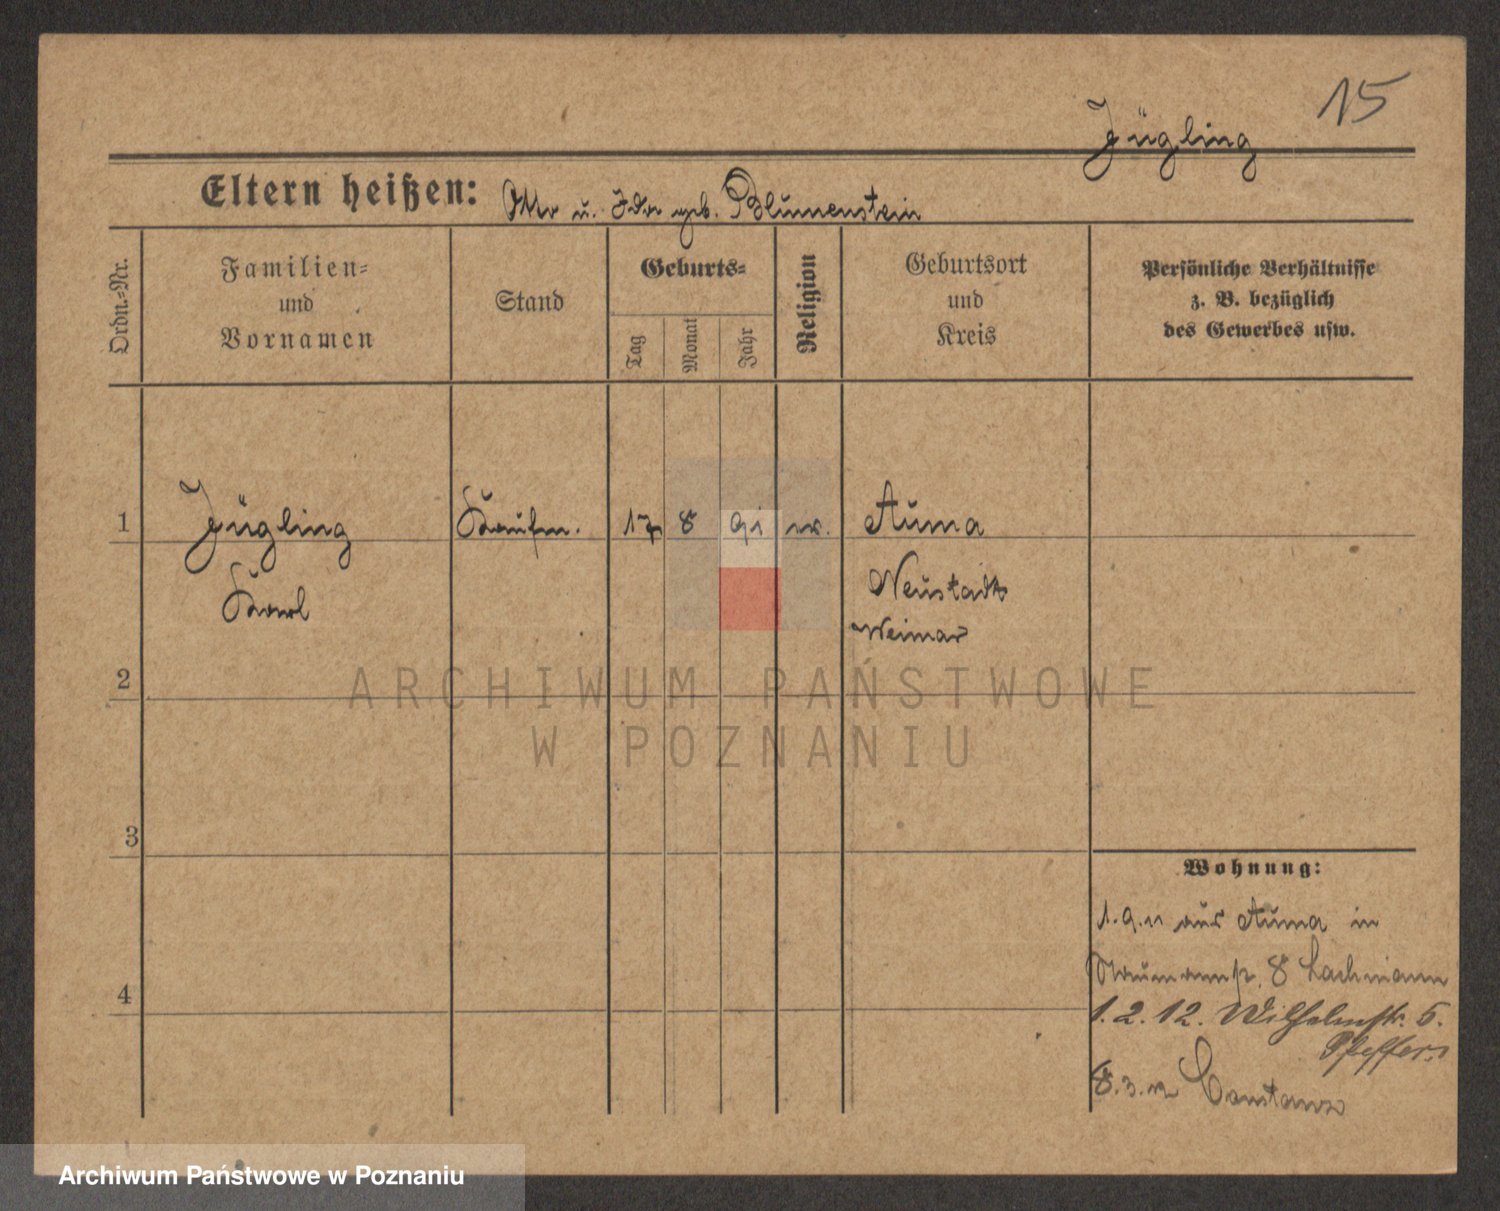 15
Jügling
Eltern heißen: Otto u. Ida geb. Blumenstein
Ordn.-Nr.
Familien- und Vornamen
Stand
Geburts-
Tag
Monat
Jahr
Religion
Geburtsort und Kreis
Persönliche Verhältnisse
z. B. bezüglich
des Gewerbes usw.
1 Jügling Kaufm. 17 8 91 Auma
Karl Neustadt
Weimar
2
3
4
Wohnung:
1.9.11 aus Auma in
Naumannstr. 8 Lachmann
1.2.12. Wilhelmstr. 5.
Pfeffer
8.3.12 Constanz
ARCHIWUM PAŃSTWOWE
W POZNANIU
Archiwum Państwowe w Poznaniu